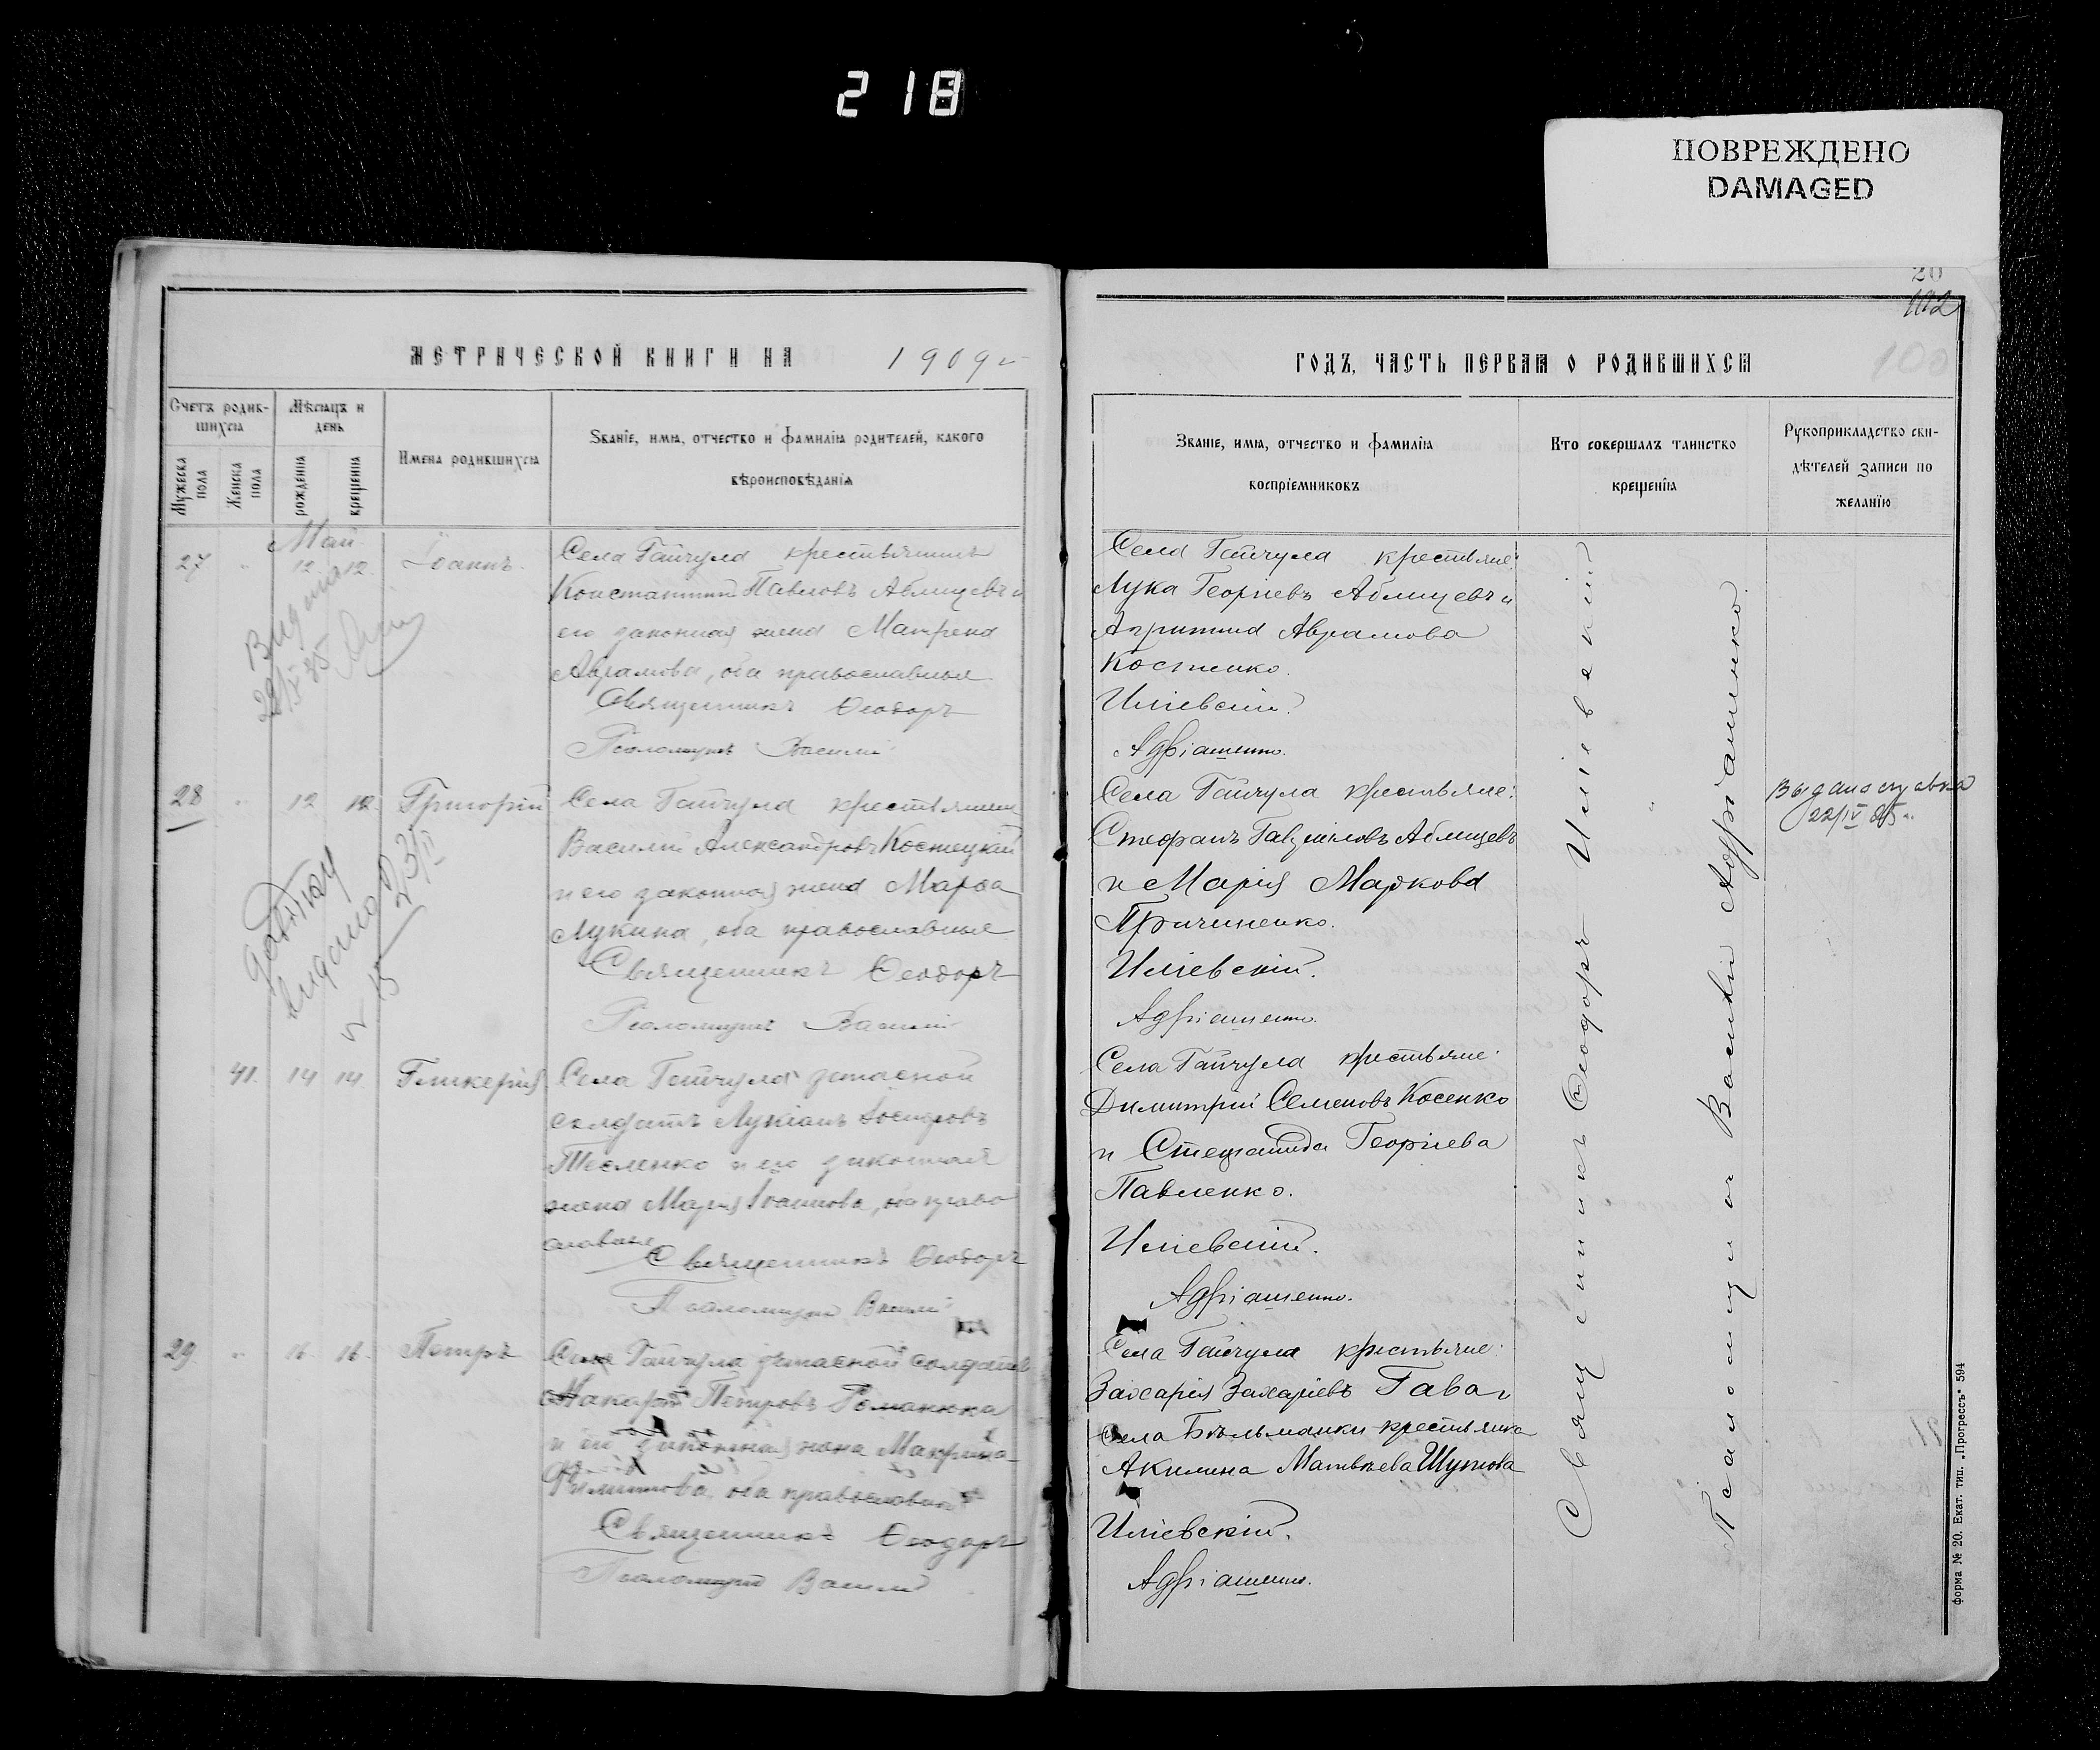 218
ПОВРЕЖДЕНО
DAMAGED
МЕТРИЧЕСКОЙ КНИГИ НА 1909 г
Счетъ родив-
шихся
Мѣсяцъ и
день
Мужеска
пола
Женска
пола
рожденія
крещенія
Имена родившихся
Званіе, имя, отчество и фамилія родителей, какого
вѣроисповѣданія
Май
27 " 12 12 Іоаннъ
Села Гайчула крестьянинъ
Константинъ Павловъ Аблицевъ и
его законная жена Матрена
Аврамова, оба православные
Священникъ Ѳеодоръ
Псаломщикъ Василій
28 " 12 12 Григорій
Села Гайчула крестьянинъ
Василій Александровъ Костецкій
и его законная жена Марѳа
Лукина, оба православные
Священникъ Ѳеодоръ
Псаломщикъ Василій
выдано 23/II
15
41. 14 14 Гликерія
Села Гайчула запасной
солдатъ Лукіанъ
Тесленко и его законная
жена Марія Іоаннова, оба право
славные
Священникъ Ѳеодоръ
Псаломщикъ Василій
29 " 16 16 Петръ
Села Гайчула запасной солдатъ
Макарій Петровъ Романюка
и его законная жена Макрина
оба православные
Священникъ Ѳеодоръ
Псаломщикъ Василій
20
102
100
ГОДЪ, ЧАСТЬ ПЕРВАЯ О РОДИВШИХСЯ
Званіе, имя, отчество и фамилія
воспріемниковъ
Кто совершалъ таинство
крещенія
Рукоприкладство сви-
дѣтелей записи по
желанію
Села Гайчула крестьяне:
Лука Георгіевъ Аблицевъ и
Аврамова
Костенко.
Иліевскій.
Адріашенко.
Села Гайчула крестьяне:
Стефанъ Гавриловъ Аблицевъ
и Марія Маркова
Гричиненко.
Иліевскій.
Адріашенко.
Выдана справка
22/IV 25 г.
Села Гайчула крестьяне:
Димитрій Семеновъ Косенко
и Стефанида Георгіева
Павленко.
Иліевскій.
Адріашенко.
Села Гайчула крестьяне:
Захарія Захаріевъ Гава и
Села Бѣльманки крестьянка
Акилина Матвѣева Шутова
Иліевскій.
Адріашенко.
Священникъ Ѳеодоръ Иліевскій
Псаломщикъ Василій Адріашенко.
Форма № 20. Екат. тип. „Прогрессъ" 594